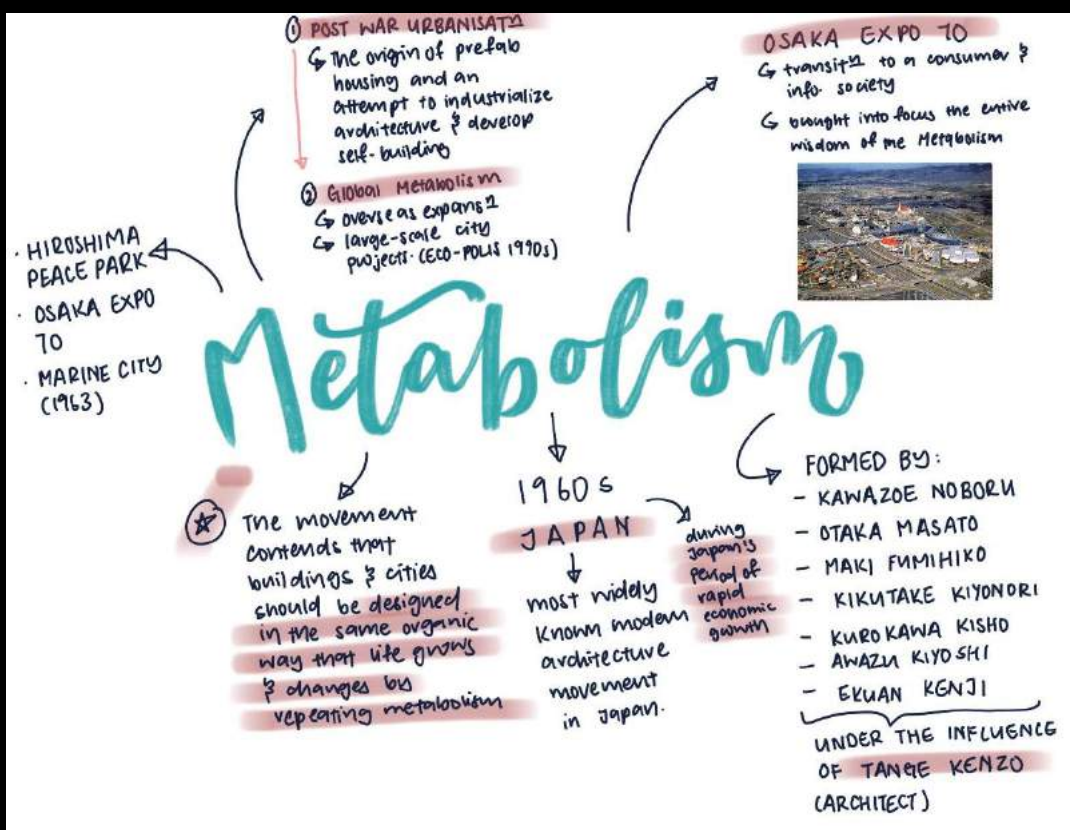 ① POST WAR URBANISATⁿ
↳ The origin of prefab
housing and an
attempt to industrialize
architecture & develop
self-building
② Global Metabolism
↳ overseas expansⁿ
↳ large-scale city
projects. (ECO-POLIS 1990s)
OSAKA EXPO 70
↳ transitⁿ to a consumer &
info. society
↳ brought into focus the entire
wisdom of me Metabolism
· HIROSHIMA
PEACE PARK
· OSAKA EXPO
70
· MARINE CITY
(1963)
Metabolism
The movement
contends that
buildings & cities
should be designed
in the same organic
way that life grows
& changes by
repeating metabolism
1960s
JAPAN
most widely
known modern
architecture
movement
in Japan.
during
Japan's
period of
rapid
economic
growth
FORMED BY:
- KAWAZOE NOBORU
- OTAKA MASATO
- MAKI FUMIHIKO
- KIKUTAKE KIYONORI
- KUROKAWA KISHO
- AWAZU KIYOSHI
- EKUAN KENJI
UNDER THE INFLUENCE
OF TANGE KENZO
(ARCHITECT)